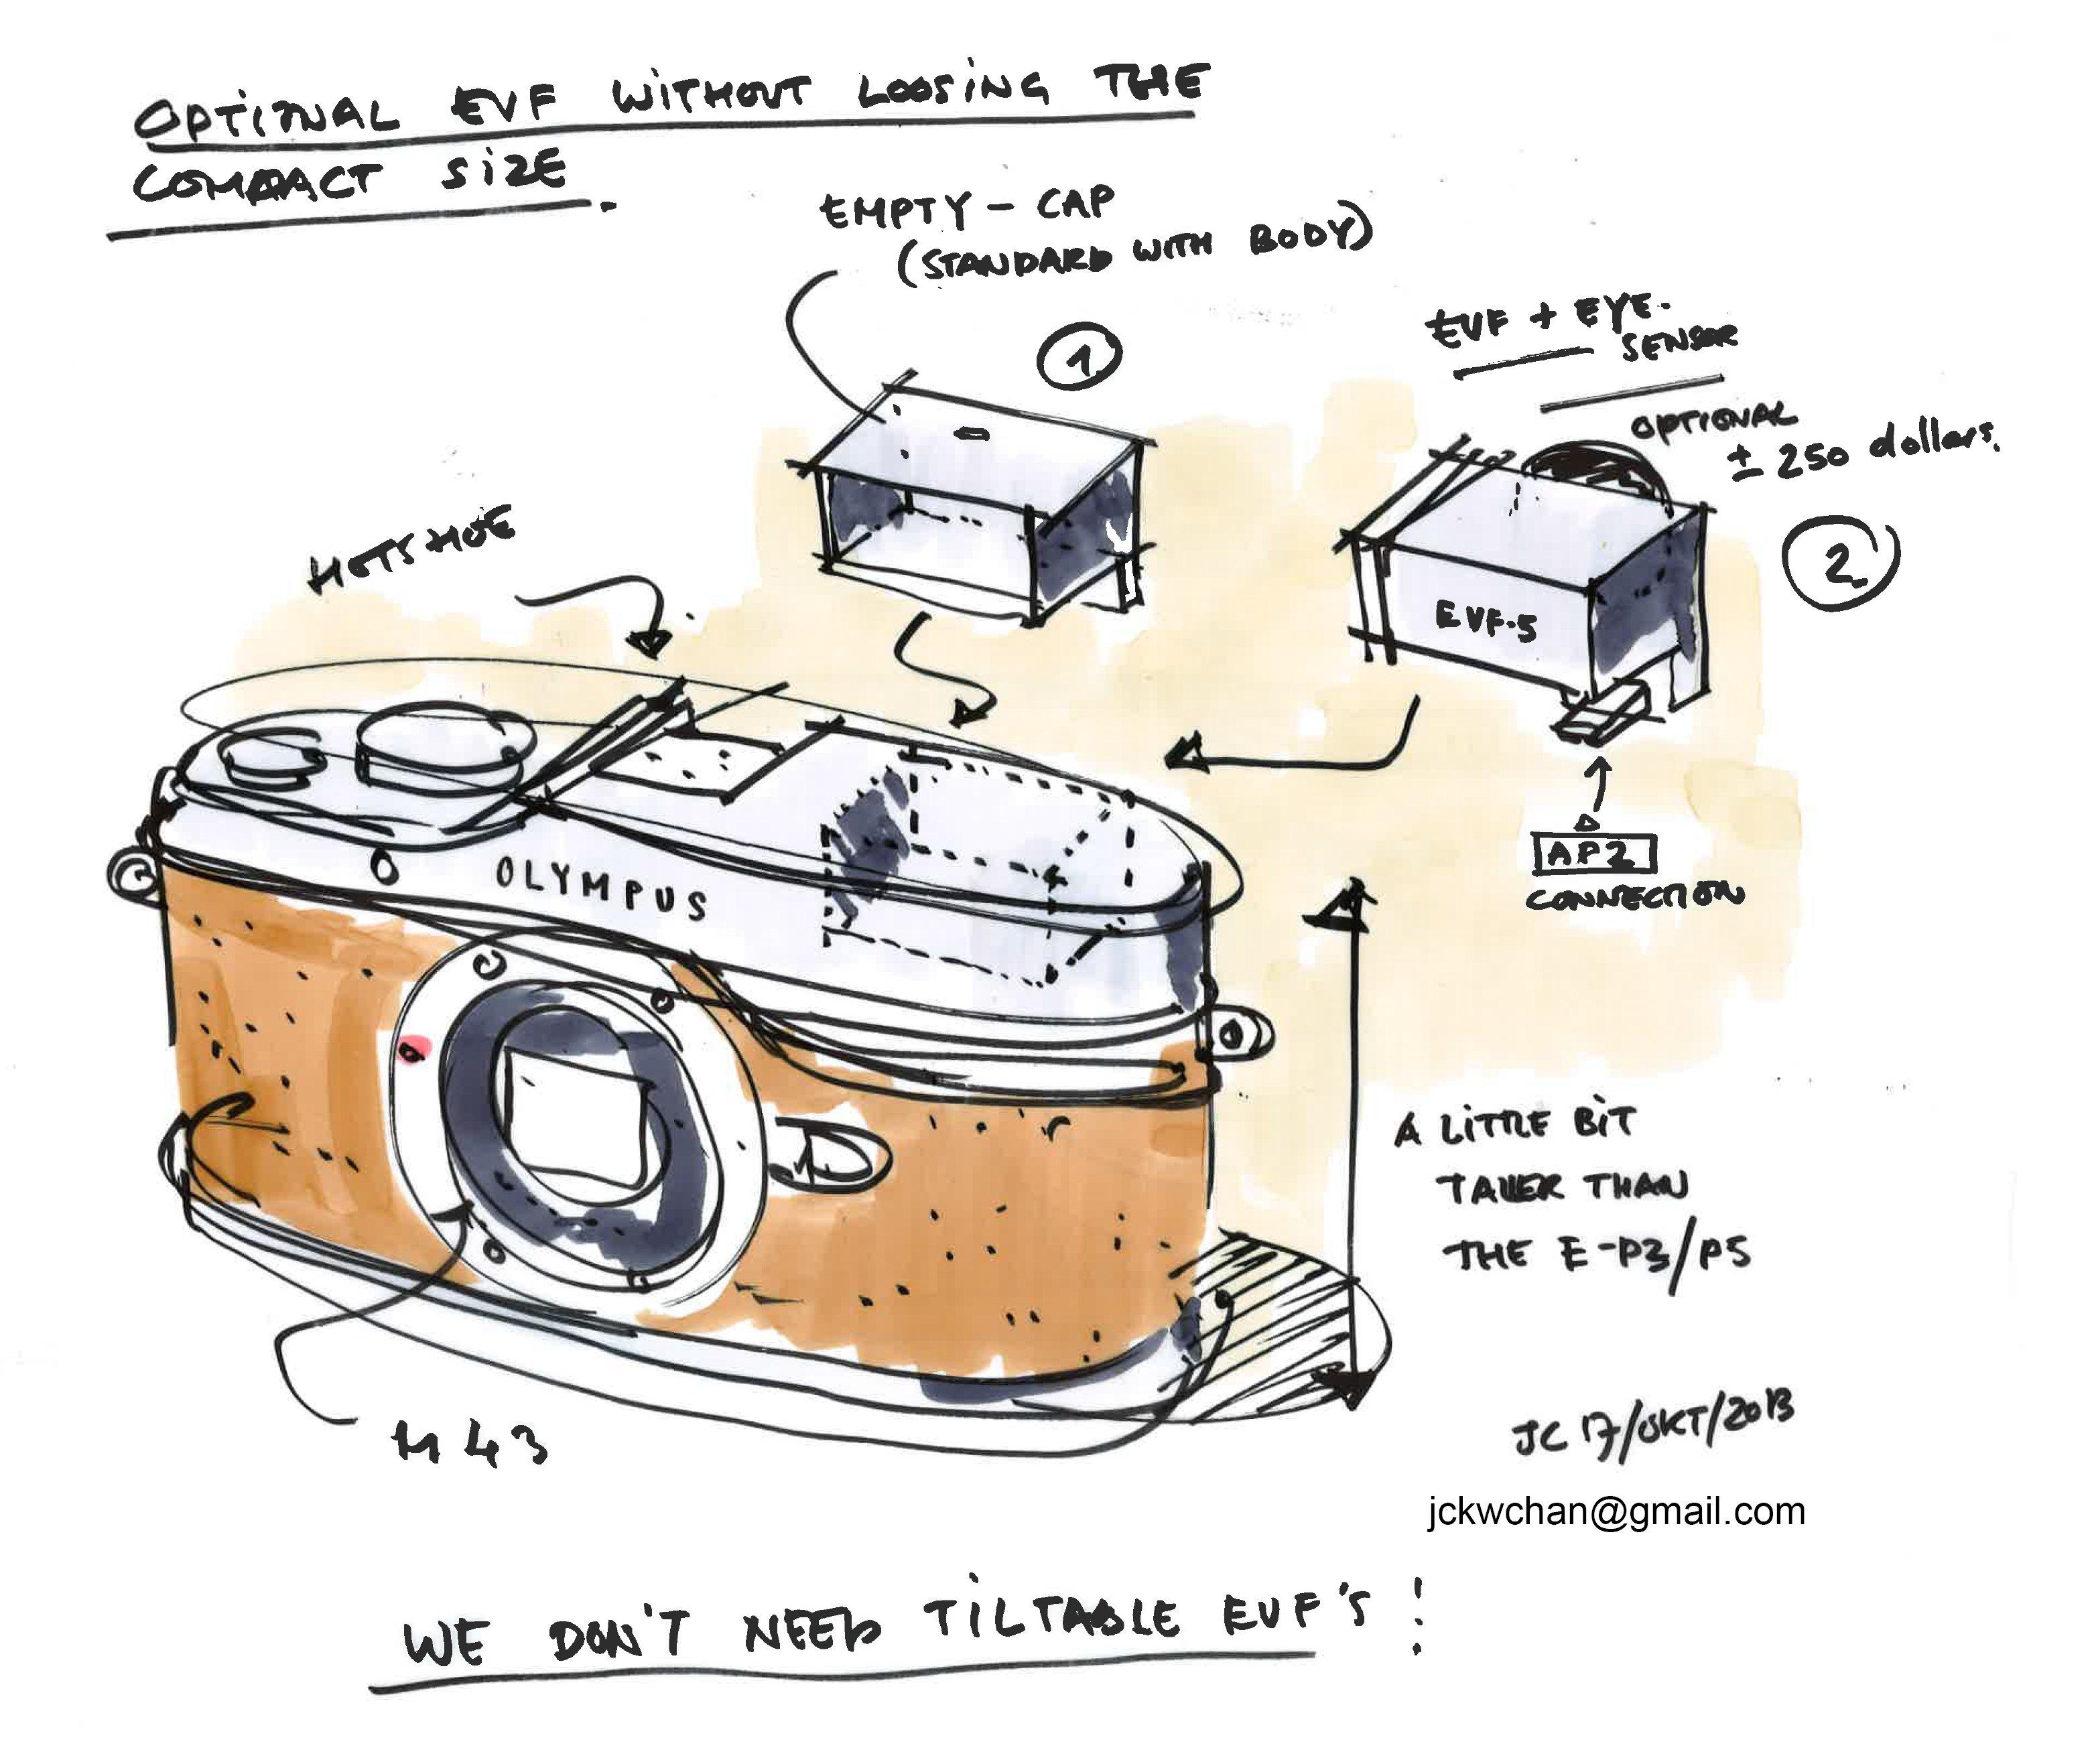 OPTIONAL EVF WITHOUT LOOSING THE
COMPACT SIZE.
EMPTY - CAP
(STANDARD WITH BODY)
1
EVF + EYE-
SENSOR
OPTIONAL
± 250 dollars.
2
HOTSHOE
EVF-5
AP2
CONNECTION
OLYMPUS
A LITTLE BIT
TALLER THAN
THE E-P3/P5
M43
JC 17/OKT/2013
jckwchan@gmail.com
WE DON'T NEED TILTABLE EVF'S !